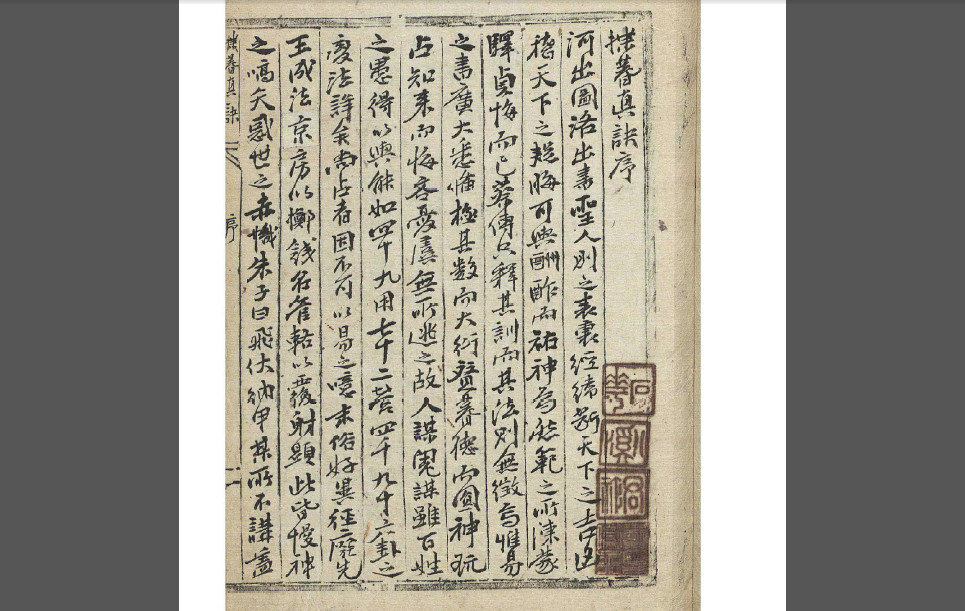 揲蓍真訣序
河出圖洛出書聖人則之表裏經緯斷天下之
稽天下之 可與酬酢而祐神焉 範之所
驛貞悔而已 傳只釋其訓而其法則無徵焉惟易
之書廣大悉備極其數而大衍 蓍德而圓神玩
占知來而悔吝憂虞無所逃之故人謀鬼謀雖百姓
之愚得以與能如四十九用七十二營四千九十六卦之
變法詳矣尚占者因不可以易之噫末俗好異徑 先
王成法京房以擲錢名管輅以覆射顯此皆 神
之 矣惑世之赤幟朱子曰飛伏納甲某所不講盖
揲蓍真訣
序
一